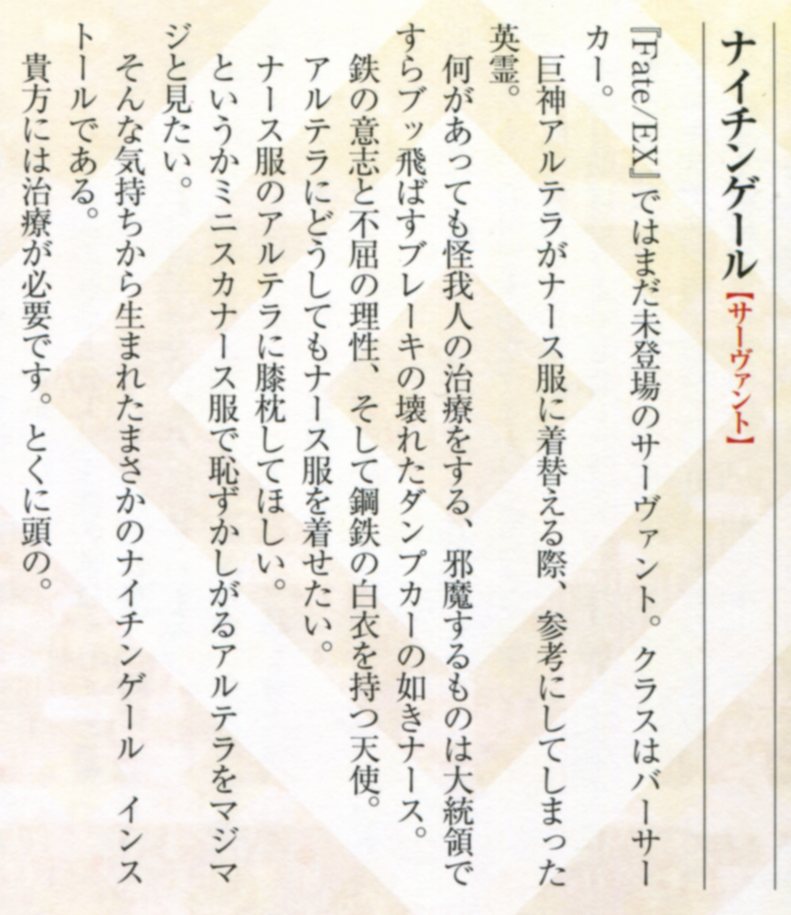 ナイチンゲール【サーヴァント】
『Fate/EX』ではまだ未登場のサーヴァント。クラスはバーサー
カー。
巨神アルテラがナース服に着替える際、参考にしてしまった
英霊。
何があっても怪我人の治療をする、邪魔するものは大統領で
すらブッ飛ばすブレーキの壊れたダンプカーの如きナース。
鉄の意志と不屈の理性、そして鋼鉄の白衣を持つ天使。
アルテラにどうしてもナース服を着せたい。
ナース服のアルテラに膝枕してほしい。
というかミニスカナース服で恥ずかしがるアルテラをマジマ
ジと見たい。
そんな気持ちから生まれたまさかのナイチンゲール　インス
トールである。
貴方には治療が必要です。とくに頭の。